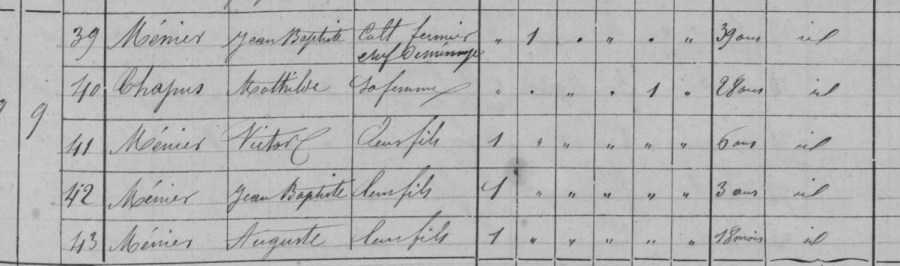 39 Ménier Jean Baptiste Cult fermier " 1 " " " " 39 ans id
chef de ménage
40 Chapus Mathilde Sa femme " " " " 1 " 28 ans id
9
41 Ménier Victor leur fils 1 " " " " " 6 ans id
42 Ménier Jean Baptiste leur fils 1 " " " " " 3 ans id
43 Ménier Auguste leur fils 1 " " " " " 18 mois id